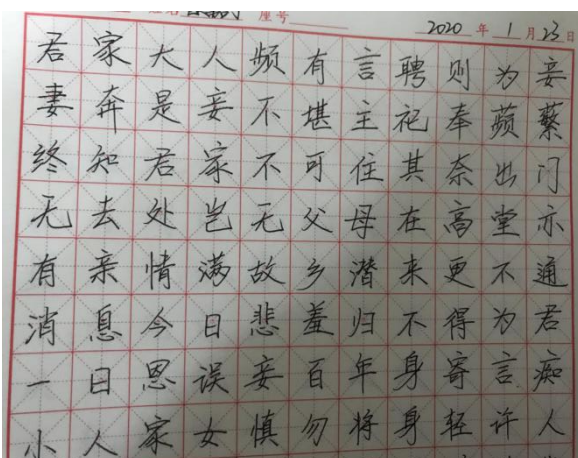 座号
2020年1月23日
君家大人频有言聘则为妾
妻奔是妾不堪主祀奉蘋蘩
终知君家不可住其奈出门
无去处岂无父母在高堂亦
有亲情满故乡潜来更不通
消息今日悲羞归不得为君
一日恩误妾百年身寄言痴
小人家女慎勿将身轻许人